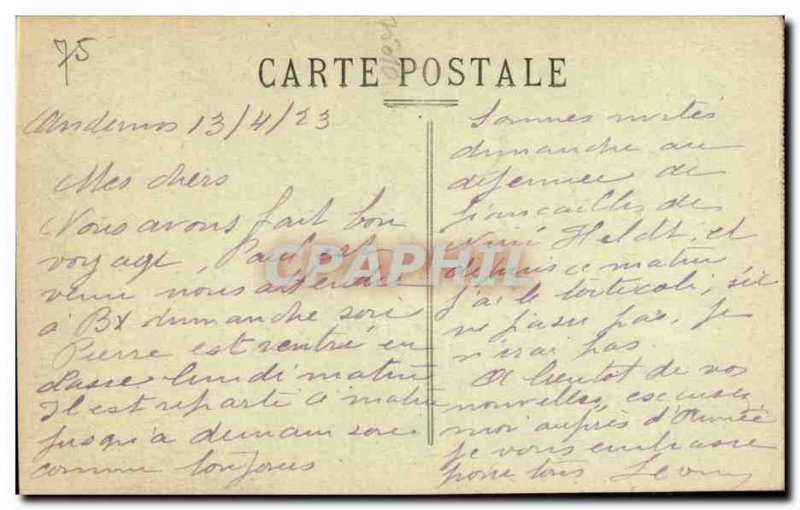 75
CARTE POSTALE
Andernos 13/4/23
Mes chers
Nous avons fait bon
voyage, Paul est
venu nous attendre
à Bx dimanche soir
Pierre est rentré en
classe lundi matin
Il est reparti ce matin
jusqu'à demain soir
comme toujours
Sommes invités
dimanche au
déjeuner de
fiançailles de
Heldt, et
depuis ce matin
j'ai le torticoli, si
ne passe pas, je
n'irai pas.
A bientôt de vos
nouvelles, excusez
moi auprès d'Aimée
je vous embrasse
pour tous
CPAPHIL